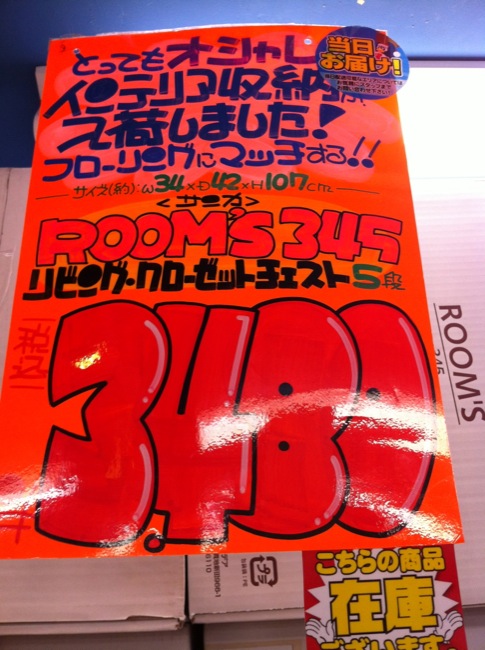 とってもオシャレ
インテリア収納が!
入荷しました!
フローリングにマッチする!!
サイズ(約):W34×D42×H107cm
<サンカ>
ROOM'S 345
リビング・クローゼットチェスト5段
3,480
当日
お届け!
ROOM'S
345
プラ
こちらの商品
在庫
ございます